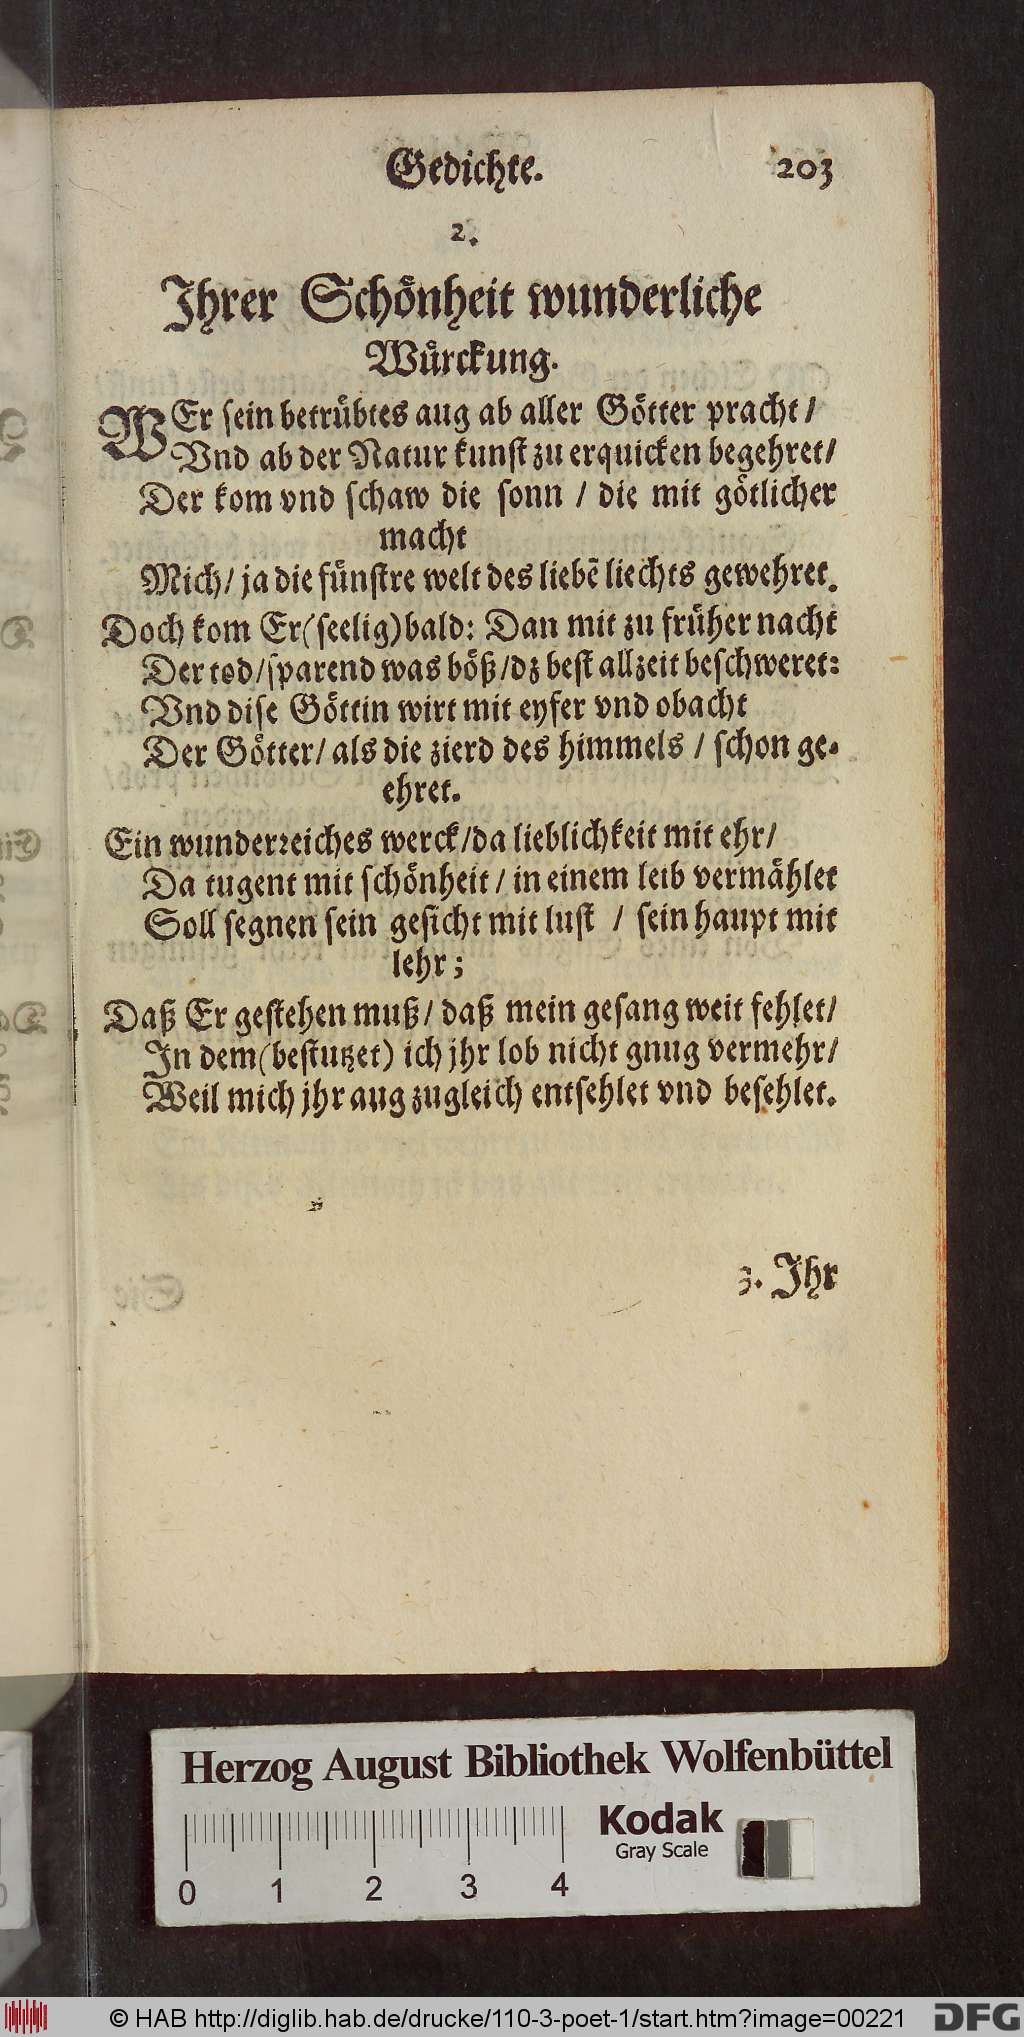 Gedichte. 203
2.
Ihrer Schönheit wunderliche
Würckung.
WEr sein betrübtes aug ab aller Götter pracht /
Vnd ab der Natur kunst zu erquicken begehret/
Der kom vnd schaw die sonn / die mit götlicher
macht
Mich/ ja die fünstre welt des liebẽ liechts gewehret.
Doch kom Er(seelig)bald: Dan mit zu früher nacht
Der tod/sparend was böß/dz best allzeit beschweret:
Vnd dise Göttin wirt mit eyfer vnd obacht
Der Götter/ als die zierd des himmels / schon ge-
ehret.
Ein wunderreiches werck/da lieblichkeit mit ehr/
Da tugent mit schönheit / in einem leib vermählet
Soll segnen sein gesicht mit lust / sein haupt mit
lehr;
Daß Er gestehen muß/ daß mein gesang weit fehlet/
In dem(bestutzet) ich jhr lob nicht gnug vermehr/
Weil mich jhr aug zugleich entsehlet vnd besehlet.
3. Ihr
Herzog August Bibliothek Wolfenbüttel
Kodak
Gray Scale
0 1 2 3 4
© HAB http://diglib.hab.de/drucke/110-3-poet-1/start.htm?image=00221
DFG